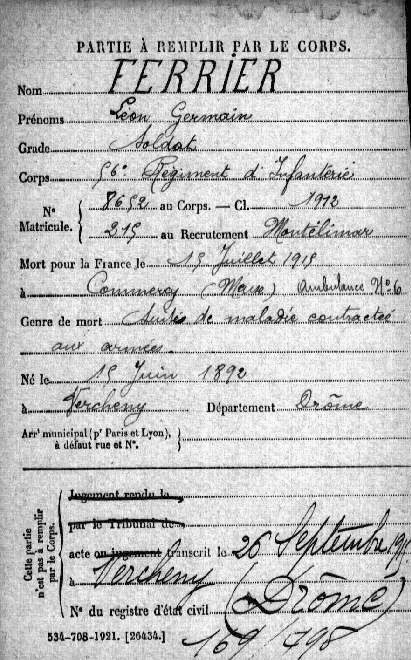 PARTIE À REMPLIR PAR LE CORPS.
Nom FERRIER
Prénoms Léon Germain
Grade Soldat
Corps 56e Régiment d'Infanterie
N° Matricule. { 8652 au Corps. — Cl. 1912
215 au Recrutement Montélimar
Mort pour la France le 15 Juillet 1915
à Commercy (Meuse) Ambulance N° 6
Genre de mort Suites de maladie contractée
aux armées
Né le 15 Juin 1892
à Vercheny Département Drôme
Arrt municipal (pr Paris et Lyon), à défaut rue et N°. }
Cette partie n'est pas à remplir par le Corps.
Jugement rendu le
par le Tribunal de
acte ou jugement transcrit le 26 Septembre
à Vercheny (Drôme)
N° du registre d'état civil
534-708-1921. [26434.] 169/798